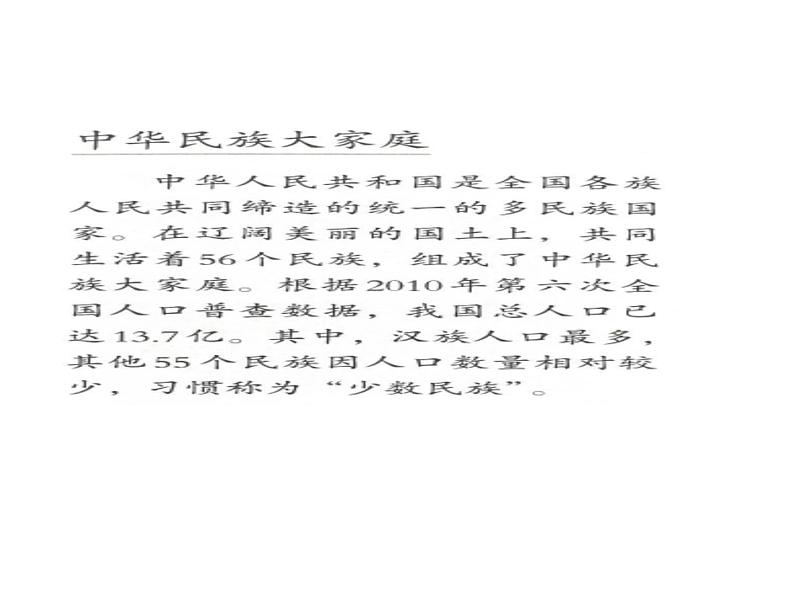 中华民族大家庭
中华人民共和国是全国各族
人民共同缔造的统一的多民族国
家。在辽阔美丽的国土上，共同
生活着56个民族，组成了中华民
族大家庭。根据2010年第六次全
国人口普查数据，我国总人口已
达13.7亿。其中，汉族人口最多，
其他55个民族因人口数量相对较
少，习惯称为“少数民族”。